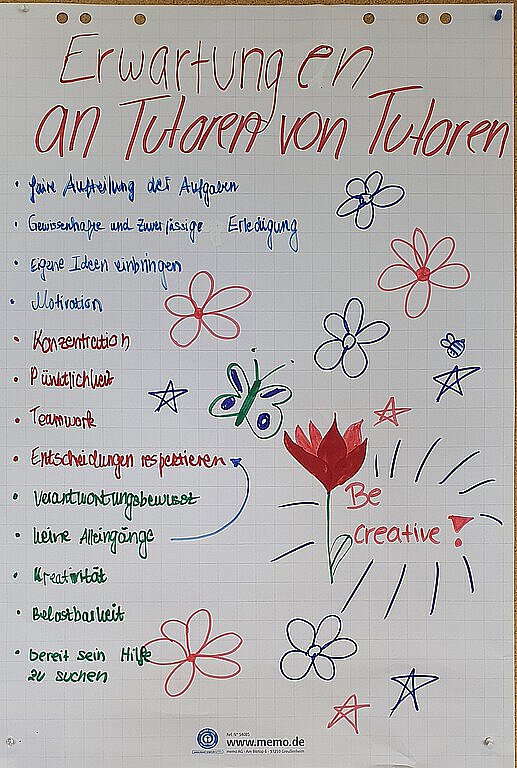 Erwartungen
an Tutoren von Tutoren
• faire Aufteilung der Aufgaben
• Gewissenhafte und zuverlässige Erledigung
• eigene Ideen einbringen
• Motivation
• Konzentration
• Pünktlichkeit
• Teamwork
• Entscheidungen respektieren
• Verantwortungsbewusst
• keine Alleingänge
• Kreativität
• Belastbarkeit
• bereit sein Hilfe
zu suchen
Be
creative!
www.memo.de